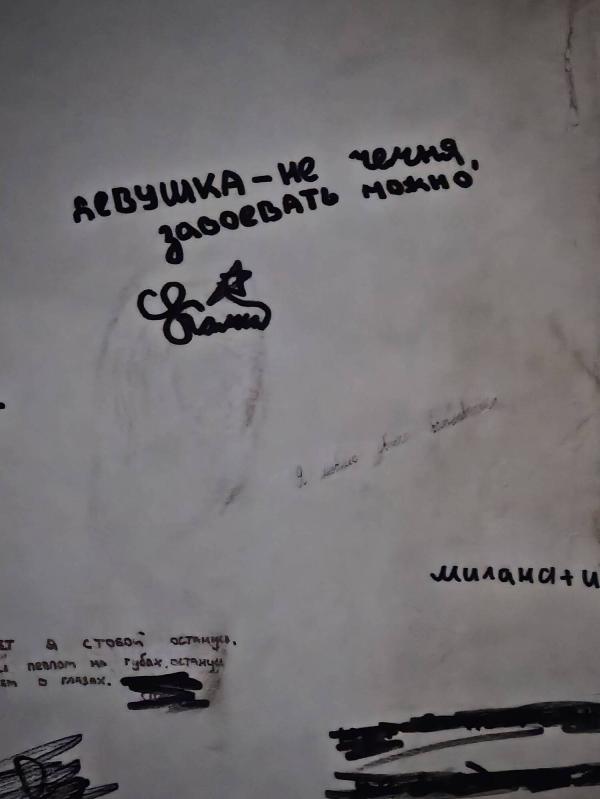 девушка - не чечня,
завоевать можно
Я
милана + и
ет я стобой останусь.
пеплом на губах. останусь
о глазах.